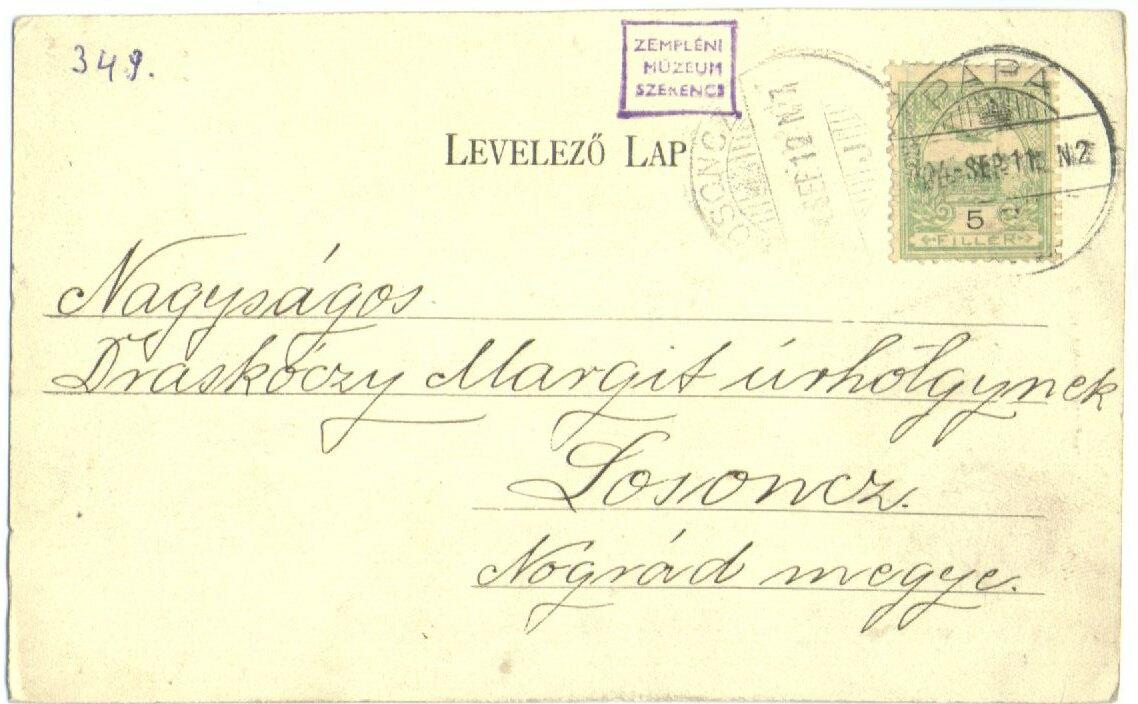 349.
ZEMPLÉNI
MÚZEUM
SZERENCS
LEVELEZŐ LAP
PÁPA
SEP. 11. N2
5
FILLÉR
Nagyságos
Draskóczy Margit úrhölgynek
Losoncz.
Nógrád megye.